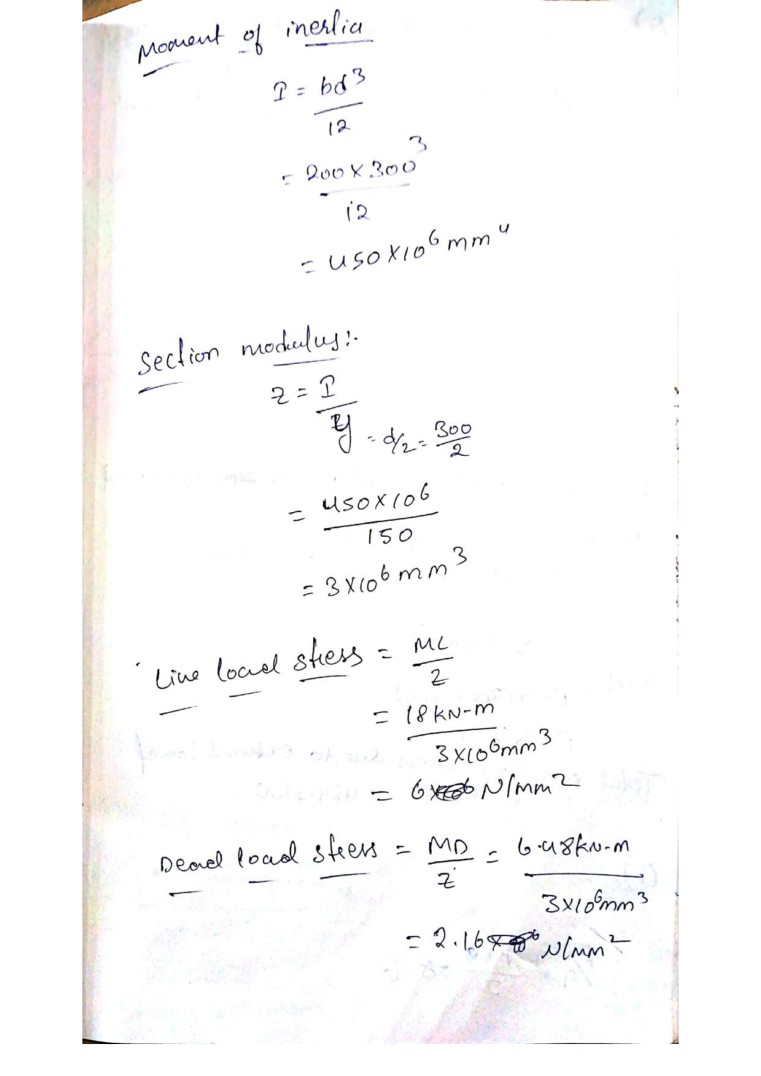 Moment of inertia
I = bd³
12
= 200 x 300³
12
= 450 x 10⁶ mm⁴
Section modulus:-
Z = I
y = d/2 = 300
2
= 450 x 10⁶
150
= 3 x 10⁶ mm³
Live load stress = ML
Z
= 18 kN-m
3 x 10⁶ mm³
= 6 N/mm²
Dead load stress = MD = 6.48 kN-m
Z 3 x 10⁶ mm³
= 2.16 N/mm²